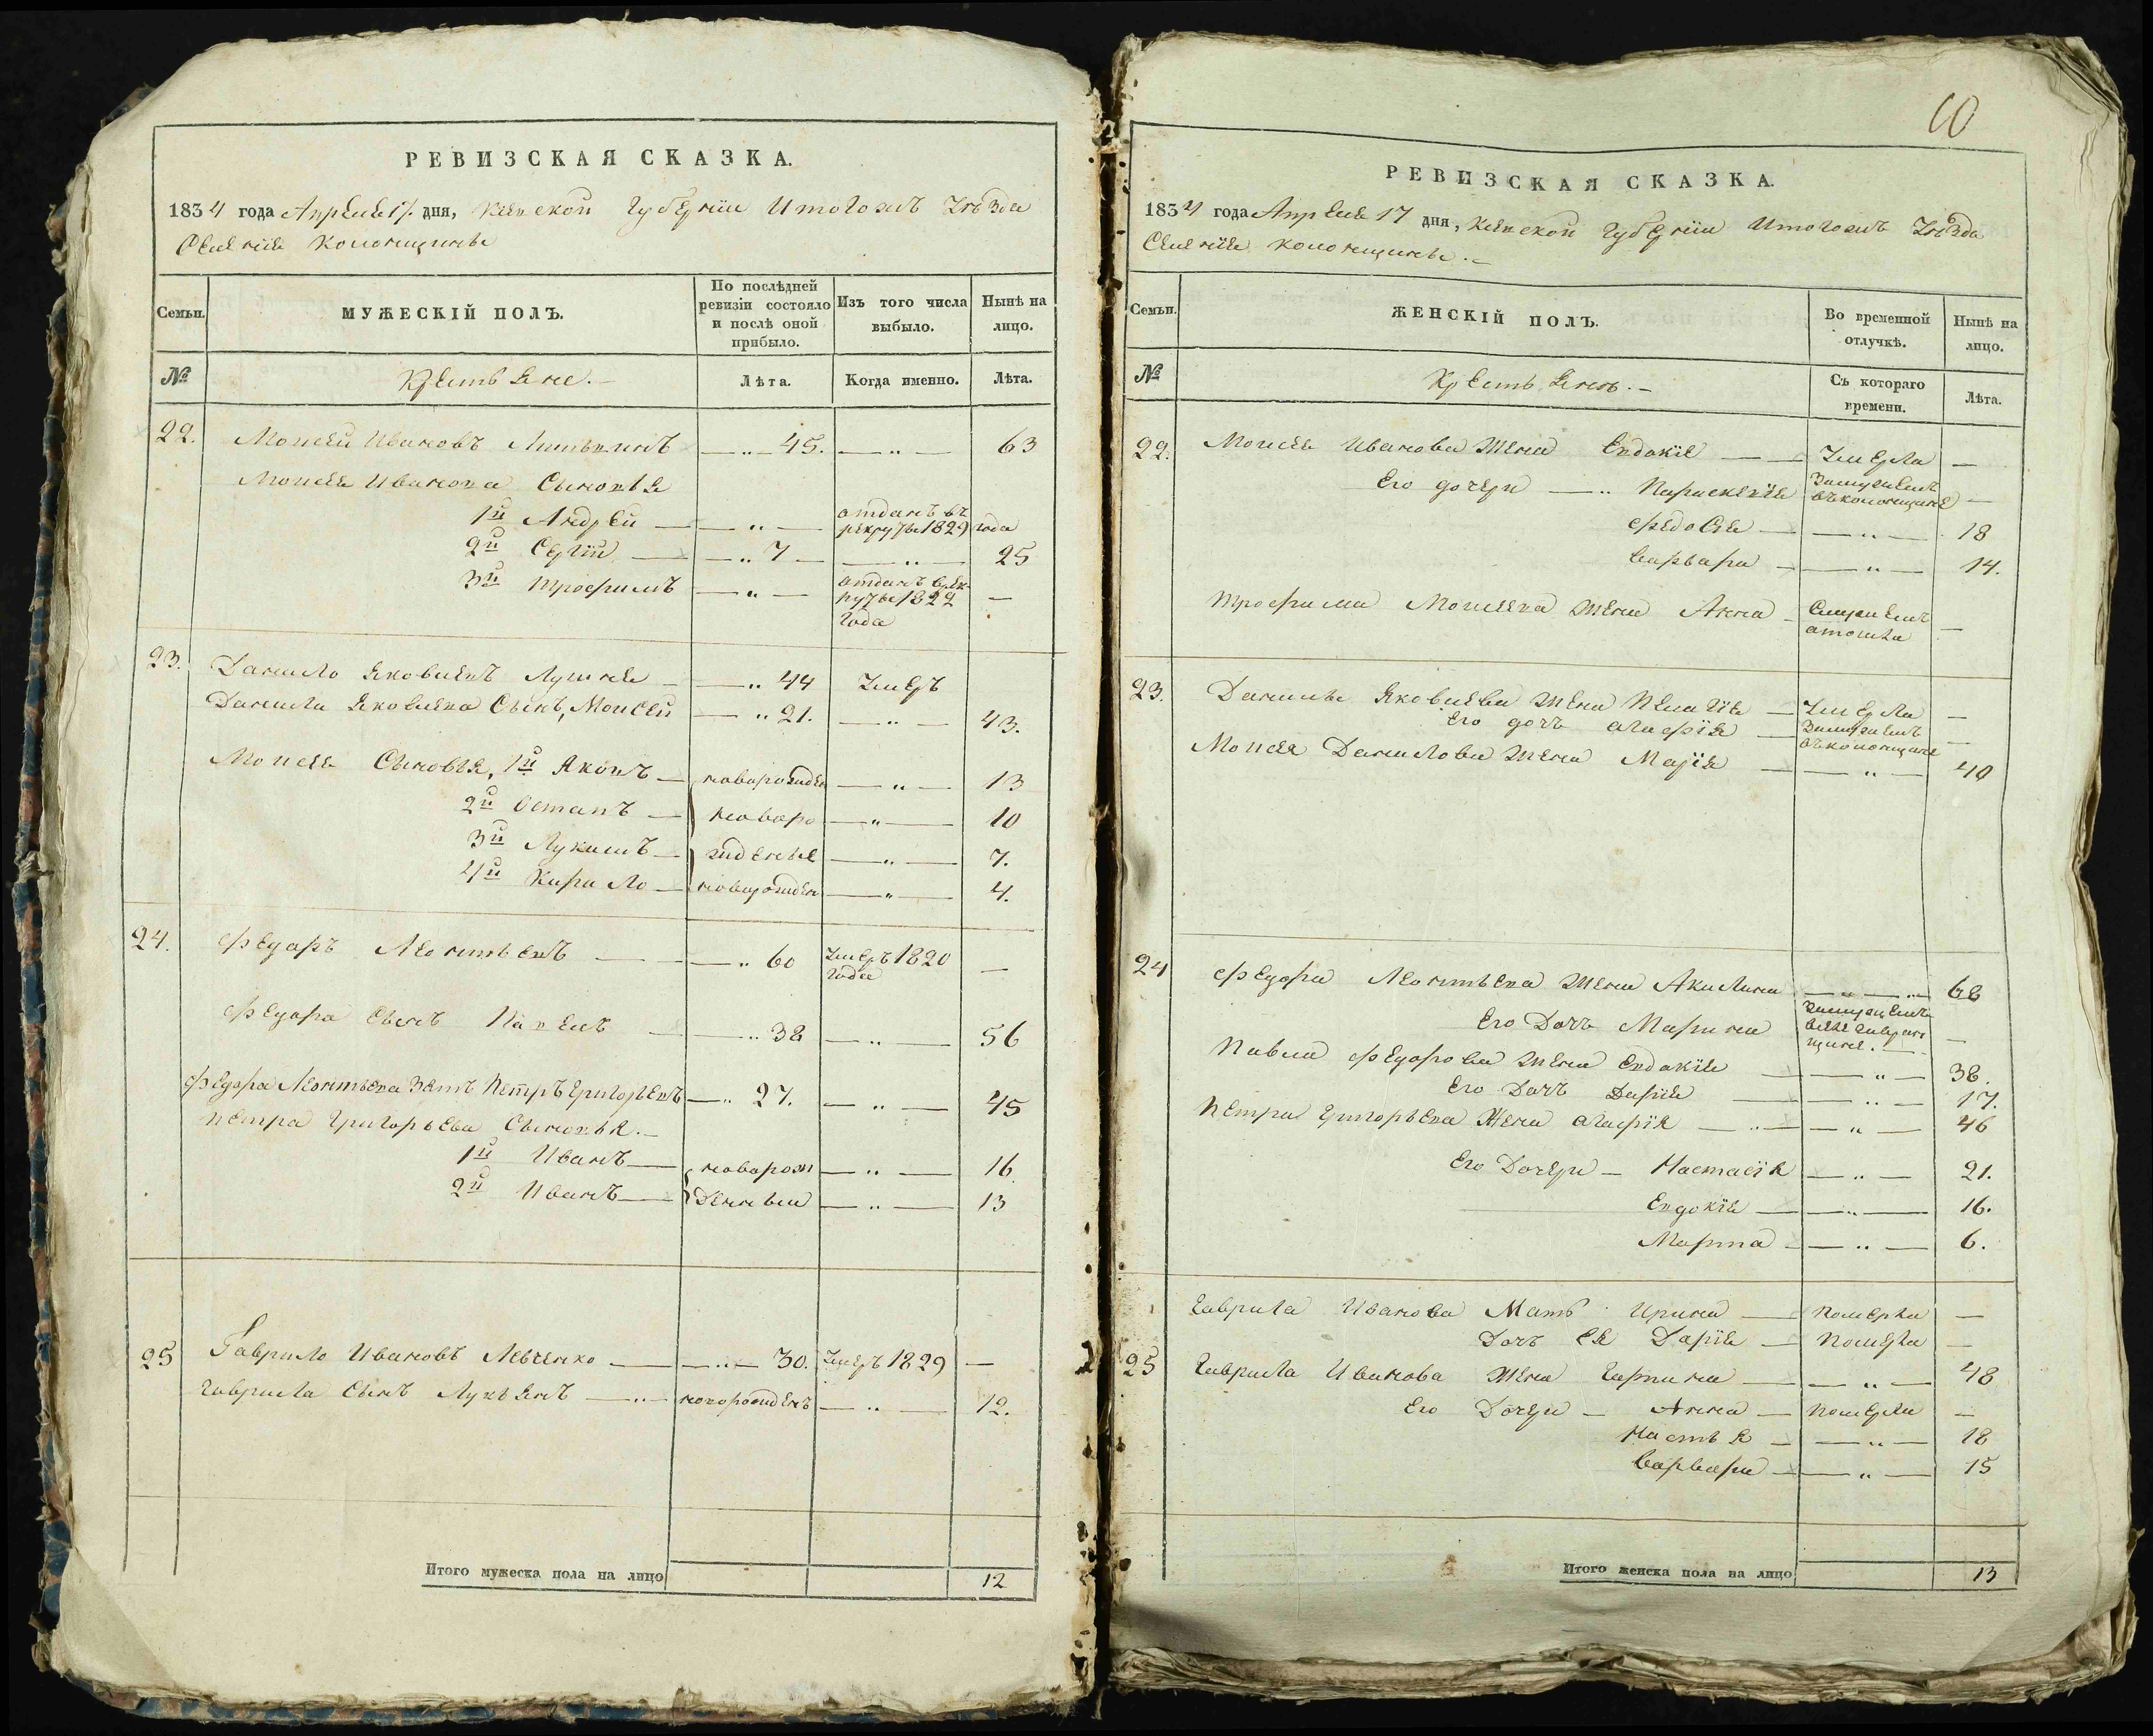 РЕВИЗСКАЯ СКАЗКА.
1834 года Апреля 17 дня, Киевской Губернии Уезда
Селения Колонщины
Семьи.
МУЖЕСКІЙ ПОЛЪ.
По послѣдней ревизіи состояло и послѣ оной прибыло.
Изъ того числа выбыло.
Нынѣ на лицо.
№
Крестьяне.
Лѣта.
Когда именно.
Лѣта.
22. Моисей Ивановъ 45. 63
Моисея Иванова Сыновья
1й Андрей отданъ въ рекруты 1829 года
2й Сергій 7 25
3й Трофимъ отданъ в рекруты 1822 года —
23. Данило Яковлевъ Лушня 44 Умеръ
Данила Яковлева Сынъ, Моисей 21. 43.
Моисея Сыновья, 1й Яковъ новорожден 13
2й Остапъ новоро 10
3й Лукашъ жденые 7.
4й Кирило новорожден 4.
24. Федоръ Леонтьевъ 60 Умеръ 1820 года —
Федора Сынъ Павелъ 38 56
Федора Леонтьева Зять Петръ Григорьевъ 27. 45
Петра Григорьева Сыновья.
1й Иванъ новорож 16
2й Иванъ денныи 13
25 Гаврило Ивановъ Левченко 30. Умеръ 1829 —
Гаврила Сынъ Лукьянъ новорожденъ 12.
Итого мужеска пола на лицо 12
10
РЕВИЗСКАЯ СКАЗКА.
1834 года Апреля 17 дня, Киевской Губернии Уезда
Селения Колонщины.
Семьи.
ЖЕНСКІЙ ПОЛЪ.
Во временной отлучкѣ.
Нынѣ на лицо.
№
Крестьянъ.
Съ котораго времени.
Лѣта.
22. Моисея Иванова жена Евдокія Умерла —
Его дочери Параскевія Замужемъ въ Колонщине —
Федося 18
Варвара 14.
Трофима Моисеева жена Анна Смужемъ отошла —
23. Данилы Яковлева жена Пелагія Умерла —
Его дочь Агафія Замужемъ въ Колонщине —
Моисея Данилова жена Марія 40
24 Федора Леонтьева жена Акилина 68
Его Дочь Марина Замужемъ —
Павла Федорова жена Евдокія 38.
Его Дочь Дарія 17.
Петра Григорьева Жена Агафія 46
Его Дочери — Настасія 21.
Евдокія 16.
Марта 6.
Гаврила Иванова Мать Ирина померла —
Дочь ея Дарія померла —
25 Гаврила Иванова Жена Гарпина 48
Его Дочери — Анна померла —
Настья 18
Варвара 15
Итого женска пола на лицо 13